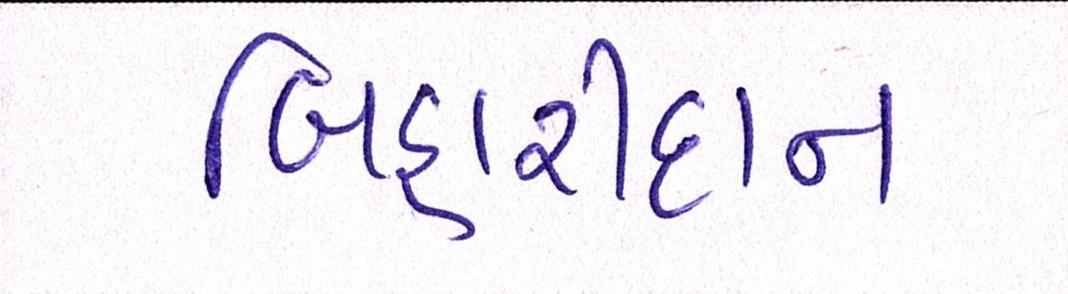 બિહારીદાન